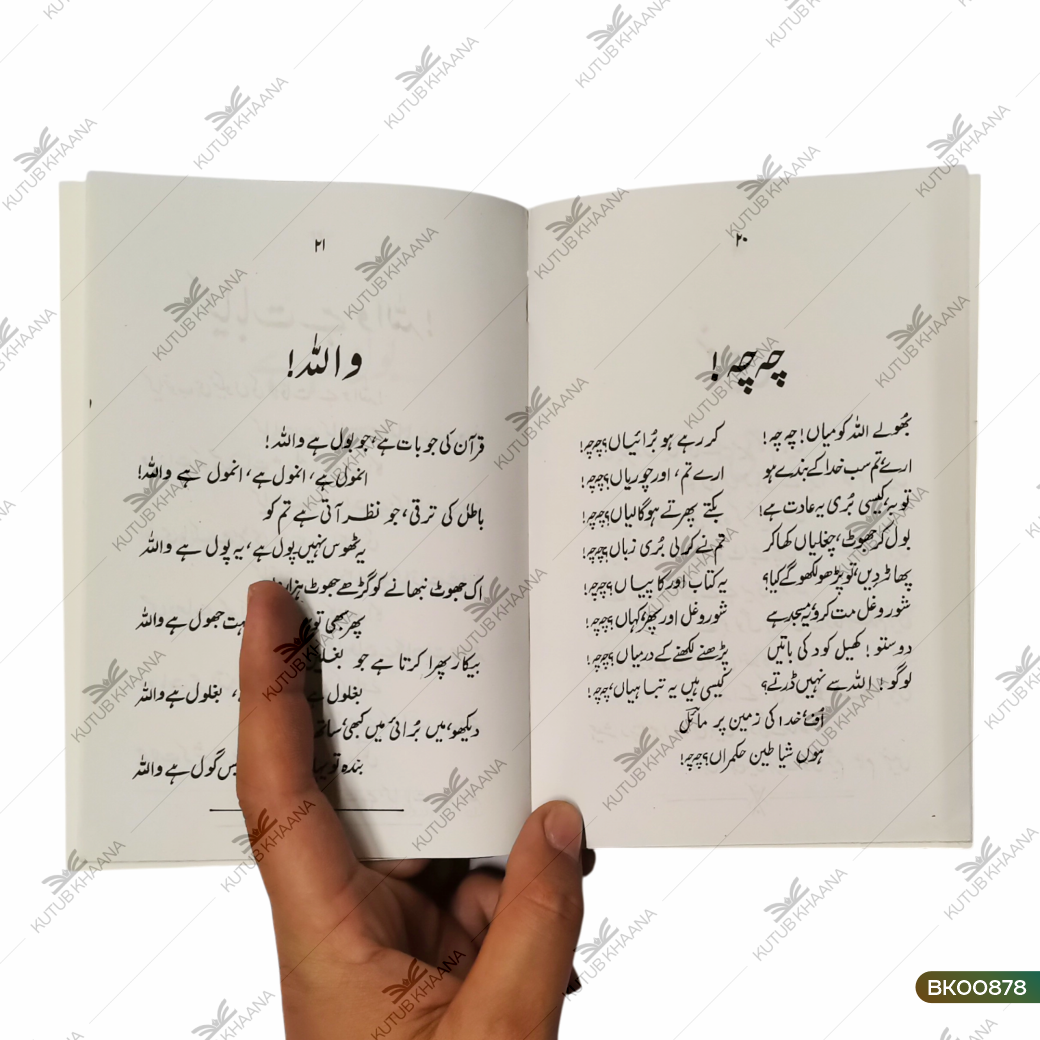 ۲۰
چہ چہ!
بھُولے اللہ کو میاں! چہ چہ! کر رہے ہو بُرائیاں؟ چہ چہ!
ارے، تم سب خدا کے بندے ہو ارے تم، اور چوریاں؟ چہ چہ!
توبہ، کیسی بُری یہ عادت ہے! بکتے پھرتے ہو گالیاں؟ چہ چہ!
بول کر جھوٹ، چغلیاں کھا کر تم نے کر لی بُری زباں؟ چہ چہ!
پھاڑ دیں، تو پڑھو لکھو گے کیا؟ یہ کتاب اور کاپیاں؟ چہ چہ!
شور و غل مت کرو، مسجد ہے شور و غل اور پھر، کہاں؟ چہ چہ!
دوستو! کھیل کود کی باتیں پڑھنے لکھنے کے درمیاں؟ چہ چہ!
لوگو! اللہ سے نہیں ڈرتے؟ کیسی ہیں یہ تباہیاں؟ چہ چہ!
اُف، خدا کی زمین پر مائلؔ
ہوں شیاطین حکمراں؟ چہ چہ!
۲۱
واللہ!
قرآن کی جو بات ہے، جو بول ہے واللہ!
انمول ہے، انمول ہے، انمول ہے واللہ!
باطل کی ترقی، جو نظر آتی ہے تم کو
یہ ٹھوس نہیں پول ہے، یہ پول ہے واللہ
اک جھوٹ نبھانے کو گڑھے جھوٹ ہزاروں
پھر بھی تو بہت جھول ہے واللہ
بیکار پھرا کرتا ہے جو بغلول
بغلول ہے ، بغلول ہے واللہ
دیکھو، میں بُرائی میں کبھی ساتھ
بندہ تو بس گول ہے واللہ
KUTUB KHAANA
BK00878